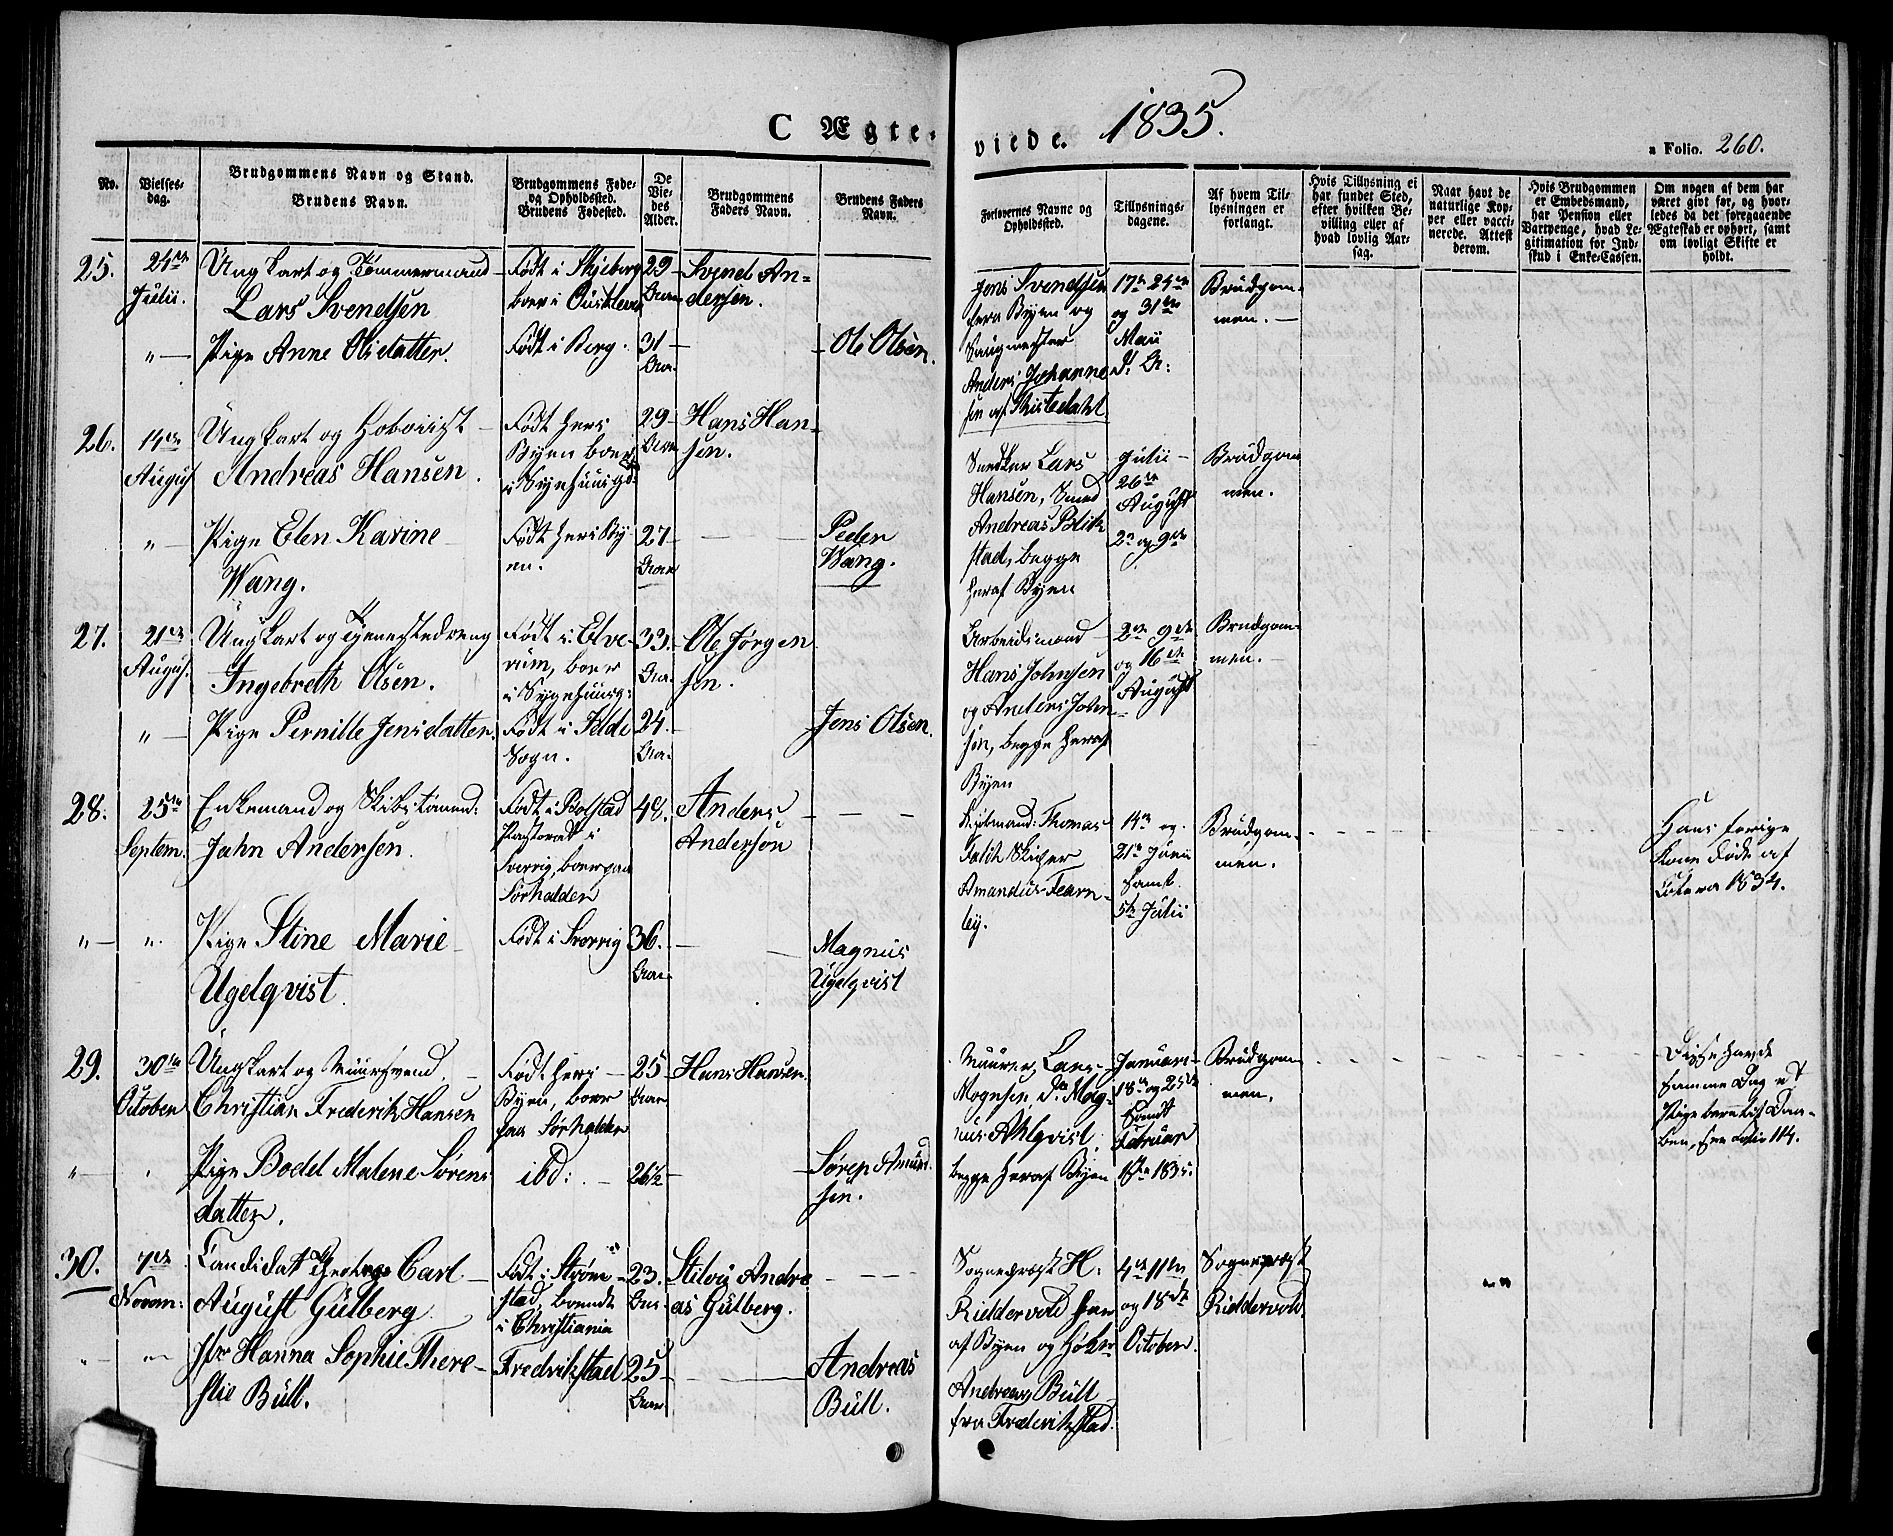 C Ægte-
viede. 1835.
a Folio. 260.
No.
Vielses-
dag.
Brudgommens Navn og Stand.
Brudens Navn.
Brudgommens Føde-
og Opholdssted.
Brudens Fødested.
De
Vie-
des
Alder.
Brudgommens
Faders Navn.
Brudens Faders
Navn.
Forlovernes Navne og
Opholdssted.
Tillysnings-
dagene.
Af hvem Til-
lysningen er
forlangt.
Hvis Tillysning ei
har fundet Sted,
efter hvilken Be-
villing eller af
hvad lovlig Aar-
sag.
Naar havt de
naturlige Kop-
per eller vacci-
nerede. Attest
derom.
Hvis Brudgommen
er Embedsmand,
har Pension eller
Vartpenge, hvad Le-
gitimation for Ind-
skud i Enke-Cassen.
Om nogen af dem har
været givt før, og hvor-
ledes da det foregaaende
Ægteskab er ophørt, samt
om lovligt Skifte er
holdt.
25.
24de
Julii.
Ungkarl og Tømmermand
Lars Svendsen
Født i Skjeberg
boer i
29
Aar
Svend An-
dersen.
Jens Svendsen
fera Byen og
Saugmester
Anders Johanne
sen af Tistedahl
17de 24de
og 31te
Maii
d. A:
Brudgom-
men.
" Pige Anne Olsdatter.
Født i Berg.
31
Aar.
Ole Olsen.
26.
14de
August
Ungkarl og Hoboiist
Andreas Hansen.
Født her i
Byen boer
i Sygehuusgd:
29
Aar
Hans Han-
sen.
Snedker Lars
Hansen, Smed
Andreas Blik
stad, begge
heraf Byen
Julii
26de
August
2de og 9de
Brudgom
men.
" Pige Elen Karine
Wang.
Født her i By-
en.
27
Aar
Peder
Wang.
27.
21de
August.
Ungkarl og Tjenestedreng
Ingebreth Olsen.
Født i Elve-
rum, boer
i Sygehuusg:
33.
Aar.
Ole Jørgen
sen.
Arbeidsmand
Hans Johnsen
og Anders John-
sen, begge heraf
Byen
2de 9de
og 16de
August
Brudgom-
men.
" Pige Pernille Jensdatter.
Født i Id
Sogn.
24.
Aar.
Jens Olsen.
28.
25de
Septem.
Enkemand og Skibstømmd:
Jahn Andersen.
Født i Bolstad
Pastorat i
Sverrig, boer paa
Sørhalden
48.
Anders
Anderson
Thomas
Falck Skiper
Amandus Fearn-
ley.
14de og
21de Junii
samt
5te Julii
Brudgom-
men.
Hans forige
Kone døde af
Colera 1834.
" " Pige Stine Marie
Ugelqvist.
Født i Sverrig
36.
Aar
Magnus
Ugelqvist
29.
30te
October
Ungkarl og Muursvend
Christian Frederik Hansen
Født her i
Byen, boer
paa Sørhalden
25
Aar
Hans Hansen
Muurer Lars
Mognsen, do Mag-
nus Ahlqvist,
begge heraf Byen
Januari
18de og 25de
samt
Februar
1ste 1835.
Brudgom
men.
Disse havde
samme Dag et
Pigebarn til Daa-
ben, see Folio 114.
" Pige Bodel Malene Sørens
datter.
ibd:
26½
Søren Amund
sen.
30.
7de
Novem:
Candidat Carl
August Gulberg
Født i Strøm-
stad, boende
i Christiania
23.
Aar
Andre
as Gulberg.
Sognepræst H.
Riddervold her
af Byen og
Andreas Bull
fra Frederikstad.
4de 11te
og 18de
October.
Sognepræst
Riddervold
" "
" " Hanna Sophie There-
sie Bull.
Fredrikstad
25
Aar
Andreas
Bull.